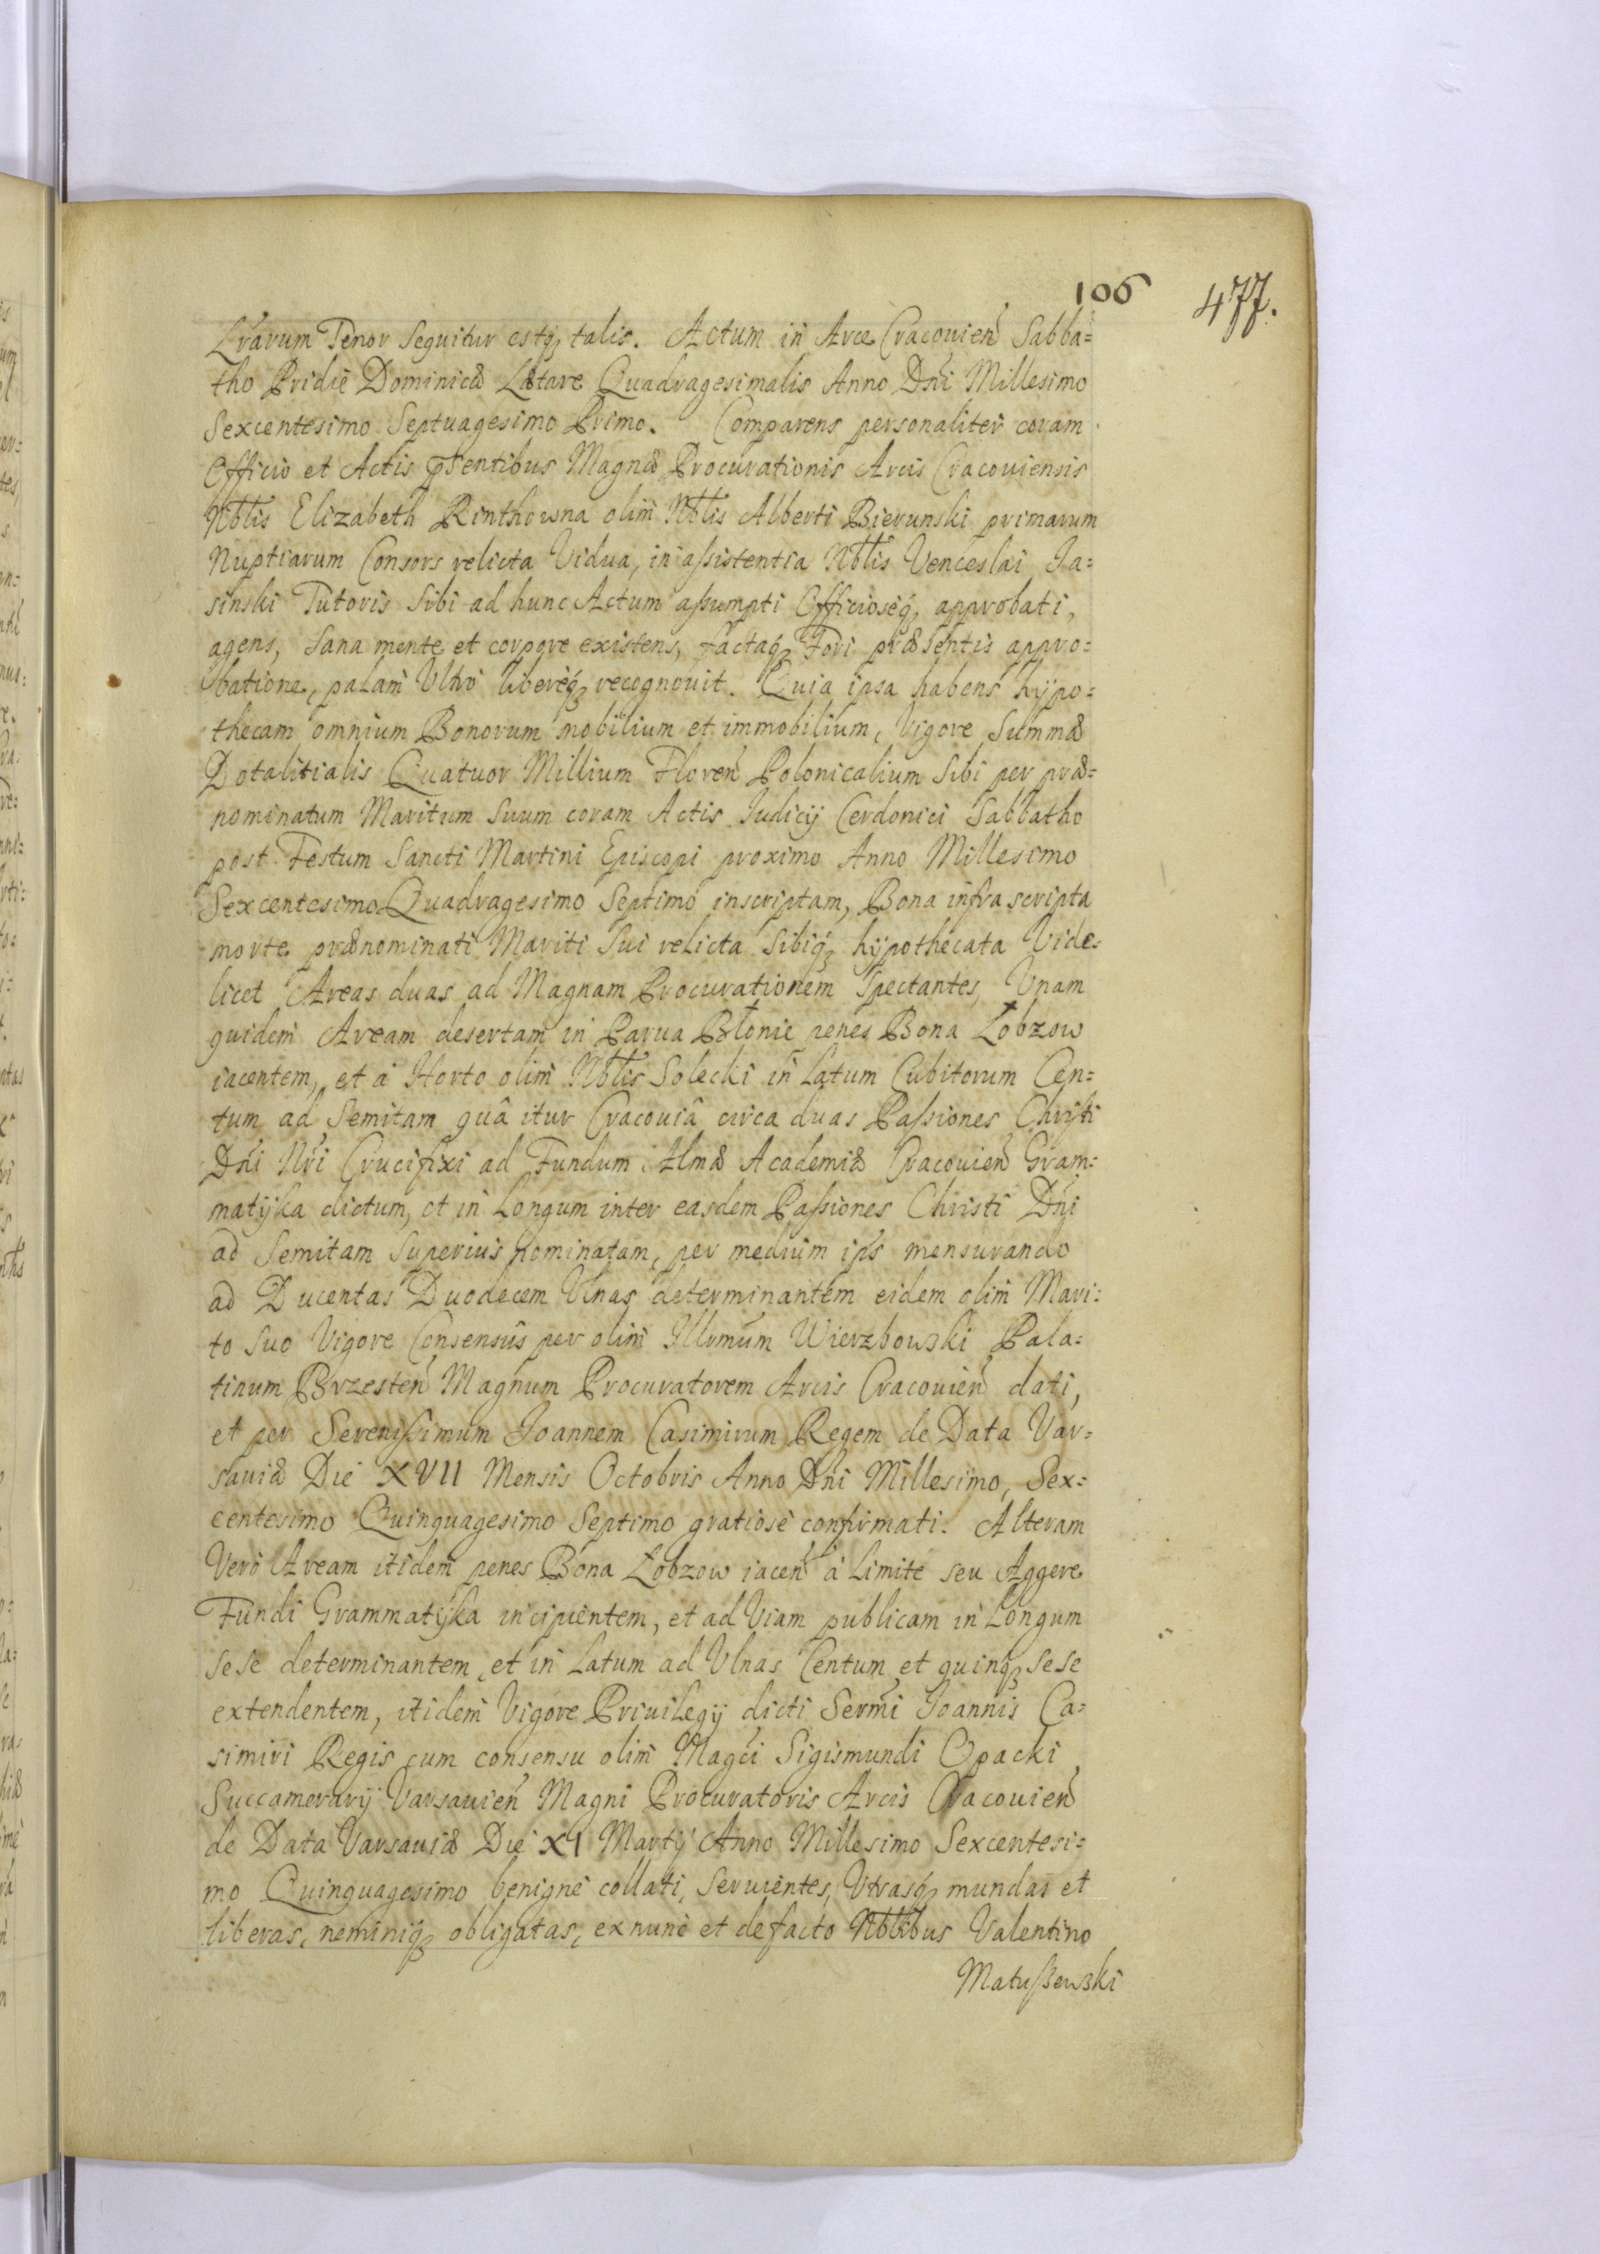 106 477.
Lrarum Tenor sequitur estq, talis. Actum in Arce Cracouien Sabba=
tho Pridie Dominicæ Lætare Quadragesimalis Anno Dni Millesimo
Sexcentesimo Septuagesimo Primo. Comparens personaliter coram
Officio et Actis pñtentibus Magnæ Procurationis Arcis Cracouiensis
Nblis Elizabeth Rinthowna olim Nblis Alberti Bierunski primarum
Nuptiarum Consors relicta Vidua, in aſsistentia Nblis Venceslai Ja=
sinski Tutoris sibi ad hunc Actum aſsumpti Officioseq, approbati,
agens, sana mente et corpore existens, factaq, Fori præsentis appro=
batione, palam Ultro libereq, recognouit. Quia ipsa habens hypo=
thecam omnium Bonorum mobilium et immobilium, Vigore Summæ
Dotalitialis Quatuor Millium Floren Polonicalium sibi per præ=
nominatum Maritum suum coram Actis Judicij Cerdonici Sabbatho
post Festum Sancti Martini Episcopi proximo Anno Millesimo
Sexcentesimo Quadragesimo Septimo inscriptam, Bona infrascripta
morte prænominati Mariti sui relicta sibiq, hypothecata Vide=
licet Areas duas ad Magnam Procurationem Spectantes, Vnam
quidem Aream desertam in Parua Błonie penes Bona Łobzow
iacentem, et à Horto olim Nblis Solecki in Latum Cubitorum Cen=
tum ad Semitam quâ itur Cracouiâ circa duas Paſsiones Christi
Dni Nri Crucifixi ad Fundum Almæ Academiæ Cracouien Gram=
matyka dictum, et in Longum inter easdem Paſsiones Christi Dni
ad Semitam superius nominatam, per medium ips mensurando
ad Ducentas Duodecem Vlnas determinantem eidem olim Mari=
to suo Vigore Consensûs per olim Illrmum Wierzbowski Pala=
tinum Brzesten Magnum Procuratorem Arcis Cracouien dati,
et per Sereniſsimum Joannem Casimirum Regem de Data Var=
sauiæ Die XVII Mensis Octobris Anno Dni Millesimo, Sex=
centesimo Quinquagesimo Septimo gratiose confirmati. Alteram
Verò Aream itidem penes Bona Łobzow iacen à Limite seu Aggere
Fundi Grammatyka incipientem, et ad Viam publicam in Longum
sese determinantem, et in Latum ad Vlnas Centum et quinq, sese
extendentem, itidem Vigore Priuilegij dicti Sermi Joannis Ca=
simiri Regis cum consensu olim Magci Sigismundi Opacki
Succamerarij Varsauien Magni Procuratoris Arcis Cracouien
de Data Varsauiæ Die XI Martij Anno Millesimo Sexcentesi=
mo Quinquagesimo benigne collati, seruientes, Vtrasq, mundas et
liberas, neminiq, obligatas, exnunc et defacto Nblibus Valentino
Matuſsewski